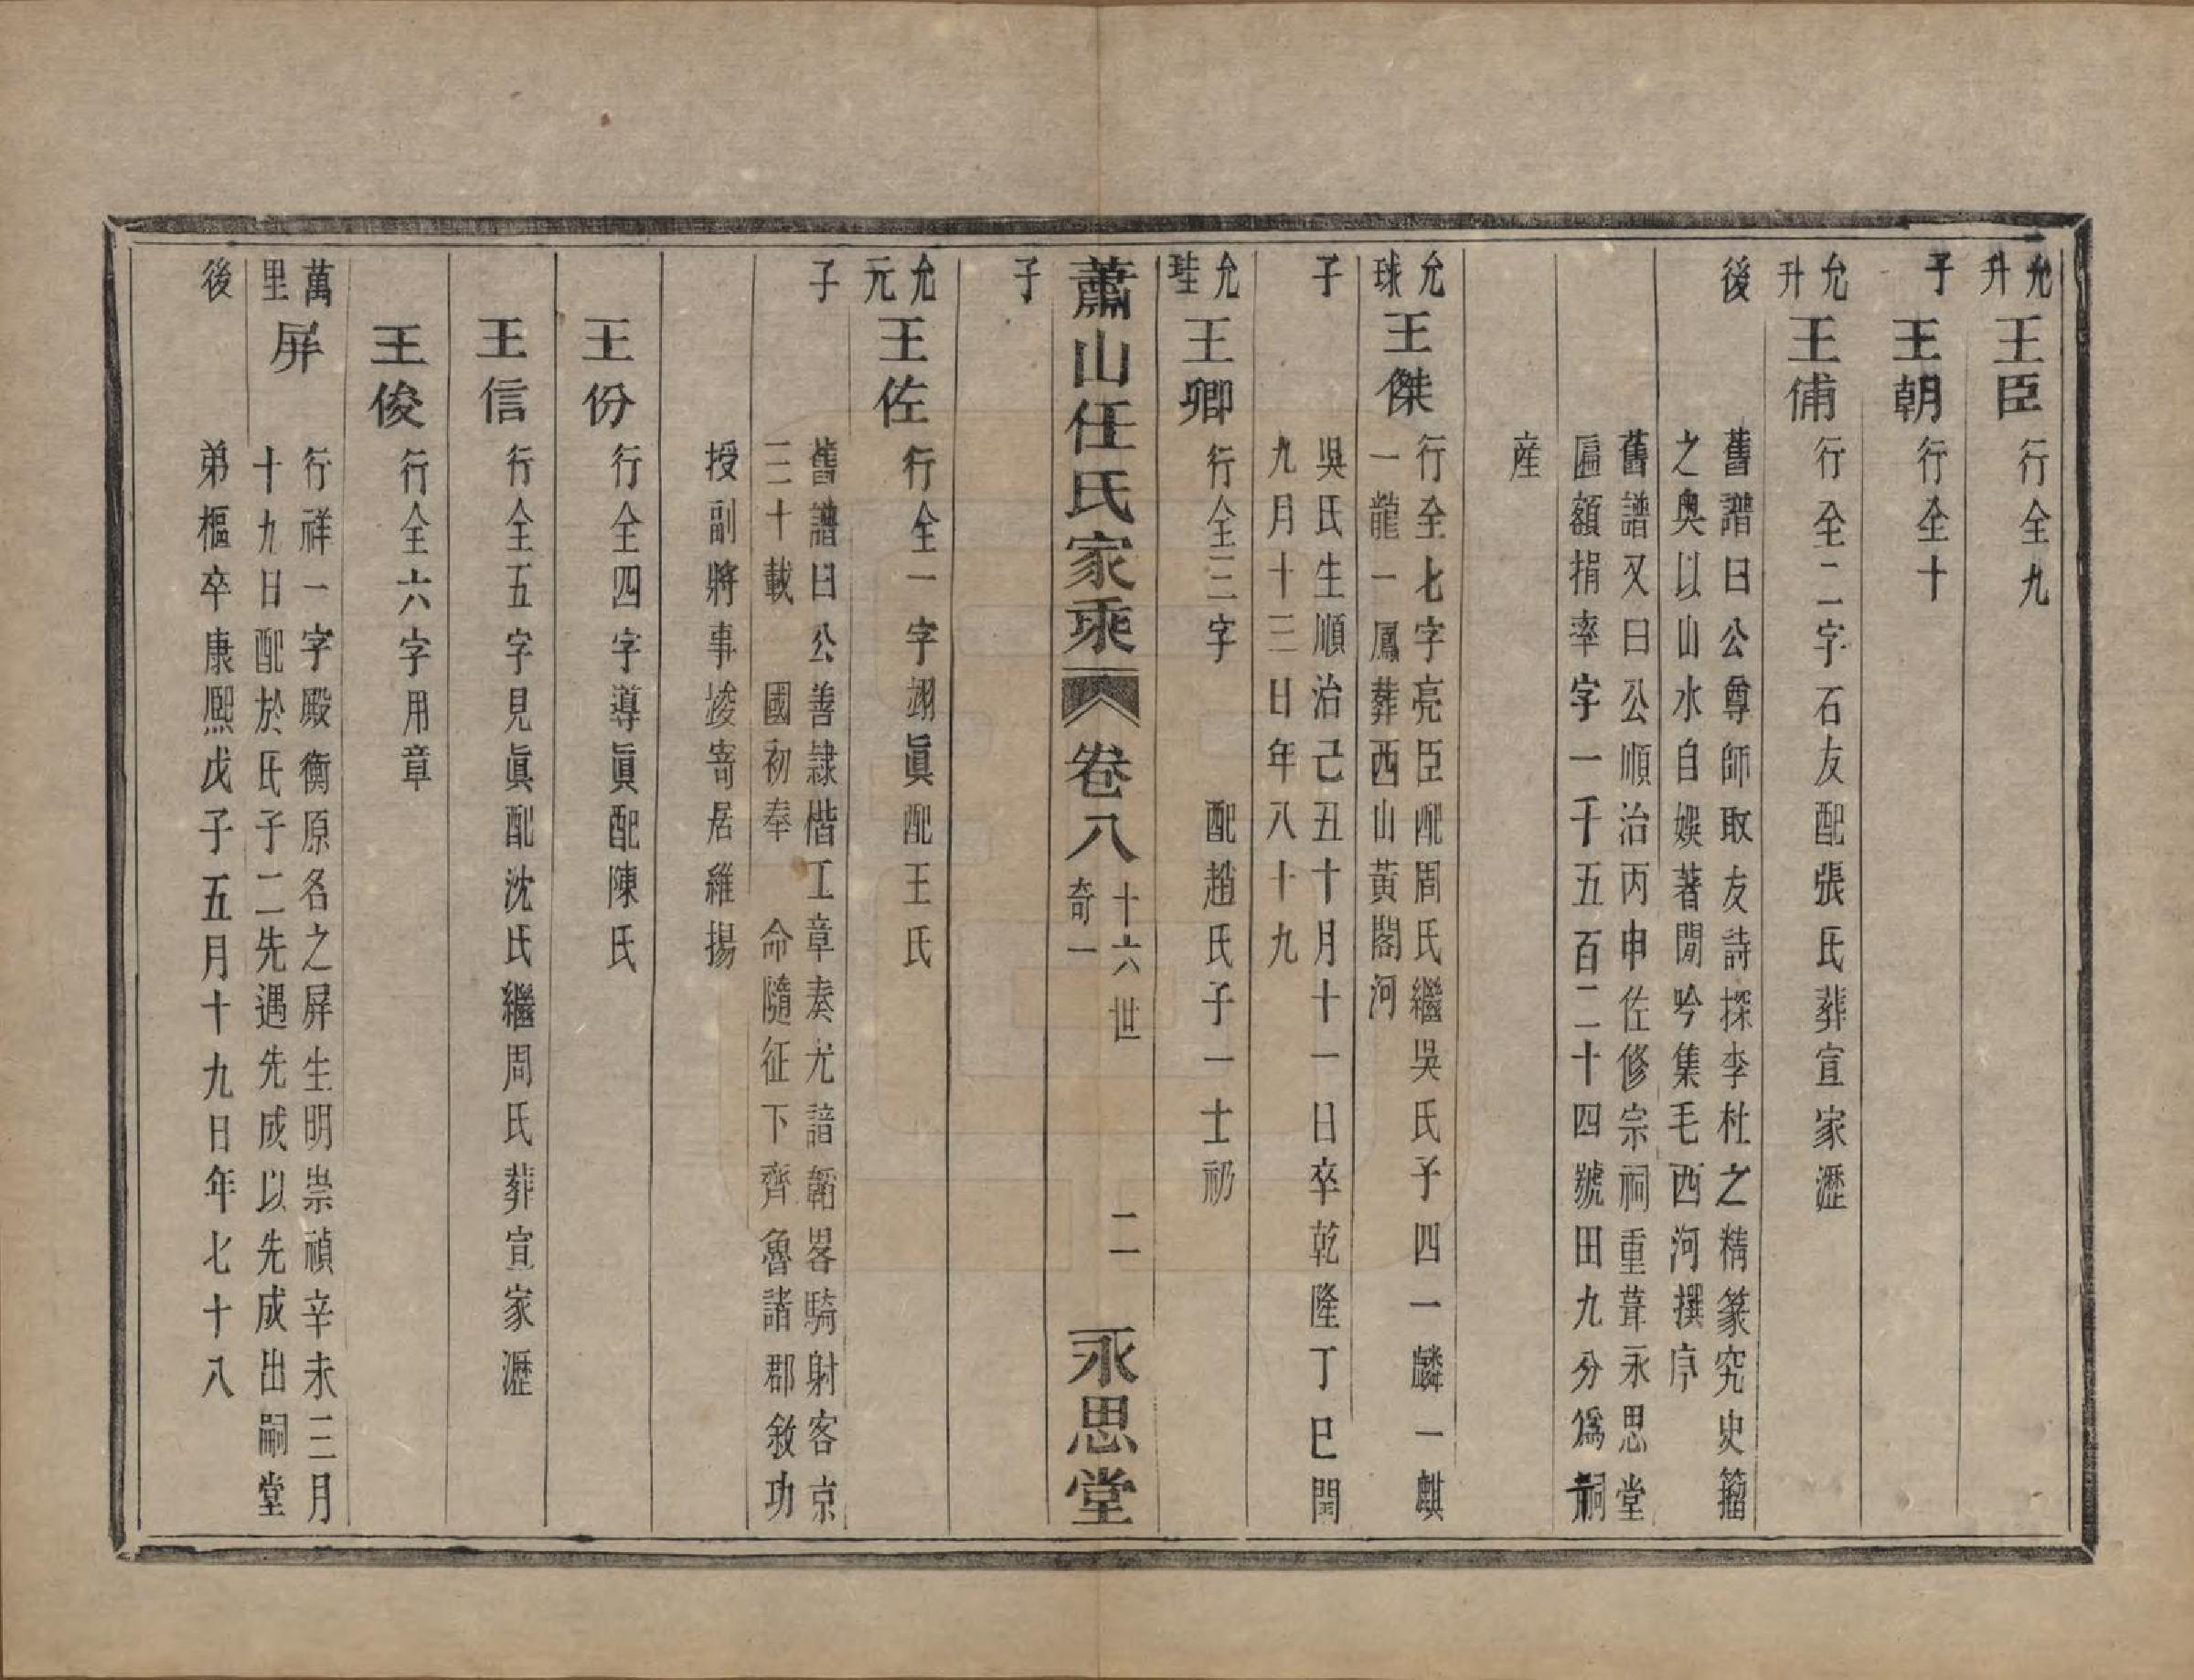 允升 王臣 行全九
子 王朝 行全十
允升 王俌 行全二字石友配張氏葬宣家瀝
後 舊譜曰公尊師取友詩探李杜之精篆究史籀
之奥以山水自娛著閒吟集毛西河撰序
舊譜又曰公順治丙申佐修宗祠重葺永思堂
匾額捐率字一千五百二十四號田九分爲祠
産
允球 王傑 行全七字亮臣配周氏繼吳氏子四一麟一麒
一龍一鳳葬西山黃閣河
子 吳氏生順治己丑十月十一日卒乾隆丁巳閏
九月十三日年八十九
允珪 王卿 行全三字 配趙氏子一士礽
子
蕭山任氏家乘 卷八 十六世 奇一 二 永思堂
允元 王佐 行全一字翊眞配王氏
子 舊譜曰公善隷楷工章奏尤諳韜畧騎射客京
三十載 國初奉 命隨征下齊魯諸郡敘功
授副將事竣寄居維揚
王份 行全四字導眞配陳氏
王信 行全五字見眞配沈氏繼周氏葬宣家瀝
王俊 行全六字用章
萬里 屏 行祥一字殿衡原名之屏生明崇禎辛未三月
十九日配於氏子二先遇先成以先成出嗣堂
後 弟樞卒康熙戊子五月十九日年七十八